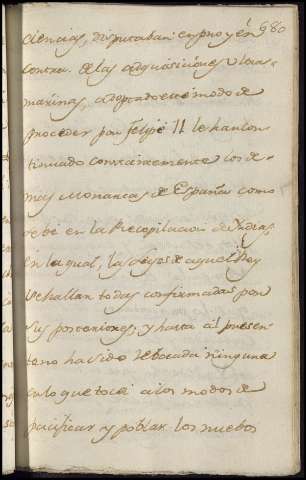 980
ciencias, disputaban en pro y en
contra de las adquisiciones ultra-
marinas, adoptado este modo de
proceder por Felipe II le han con-
tinuado constantemente los de-
mas Monarcas de España como
se be en la Recopilacion de Yndias,
en la qual, las Leyes de aquel Rey
se hallan todas confirmadas por
sus posteriores; y hasta al presen-
te no ha sido rebocada ninguna
en lo que toca a los modos de
pacificar y poblar los nuebos